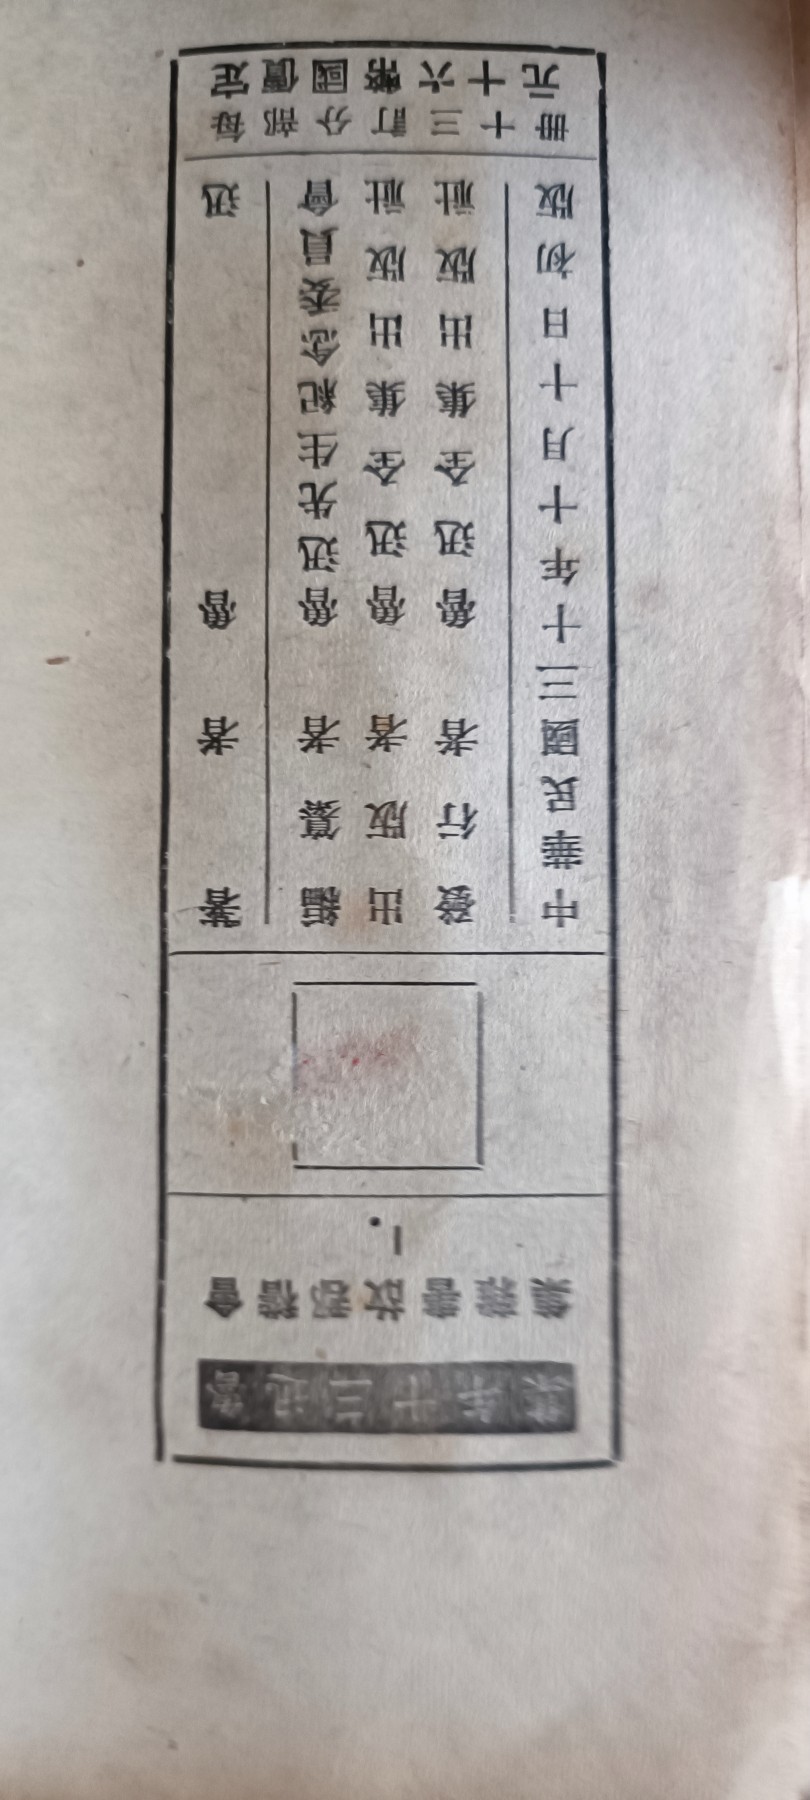 魯迅三十年集
會稽郡故書襍集
1.
著者 魯迅
編纂者 魯迅先生紀念委員會
出版者 魯迅全集出版社
發行者 魯迅全集出版社
中華民國三十年十月十日初版
每部分訂三十冊
定價國幣六十元